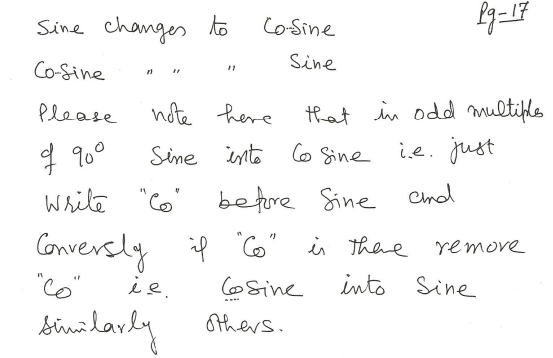 Pg-17
Sine changes to Co-Sine
Co-Sine " " " Sine
Please note here that in odd multiples
of 90° Sine into CoSine i.e. just
Write "Co" before Sine and
Conversly if "Co" is there remove
"Co" i.e. CoSine into Sine
Similarly others.